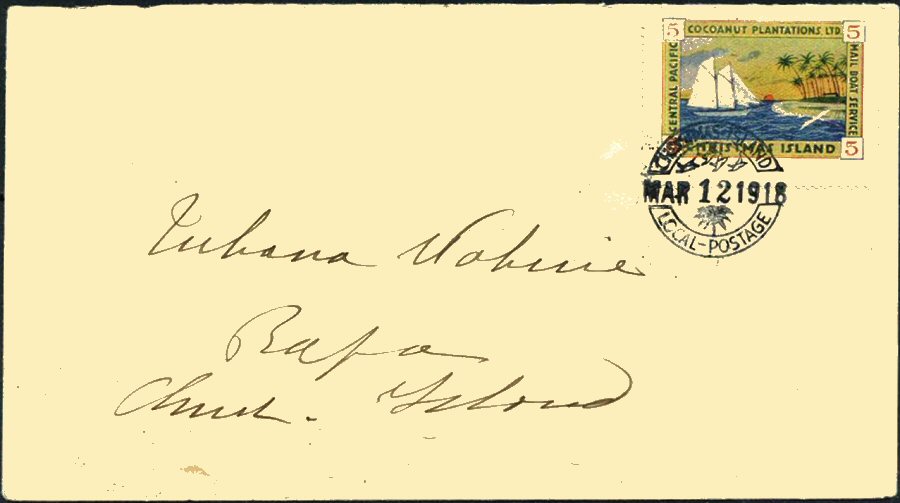 5 COCOANUT PLANTATIONS, LTD. 5
CENTRAL PACIFIC
MAIL BOAT SERVICE
5 CHRISTMAS ISLAND 5
CHRISTMAS-ISLAND
MAR 12 1918
LOCAL-POSTAGE
Tubana Wahine
Rapa
Christ. Island